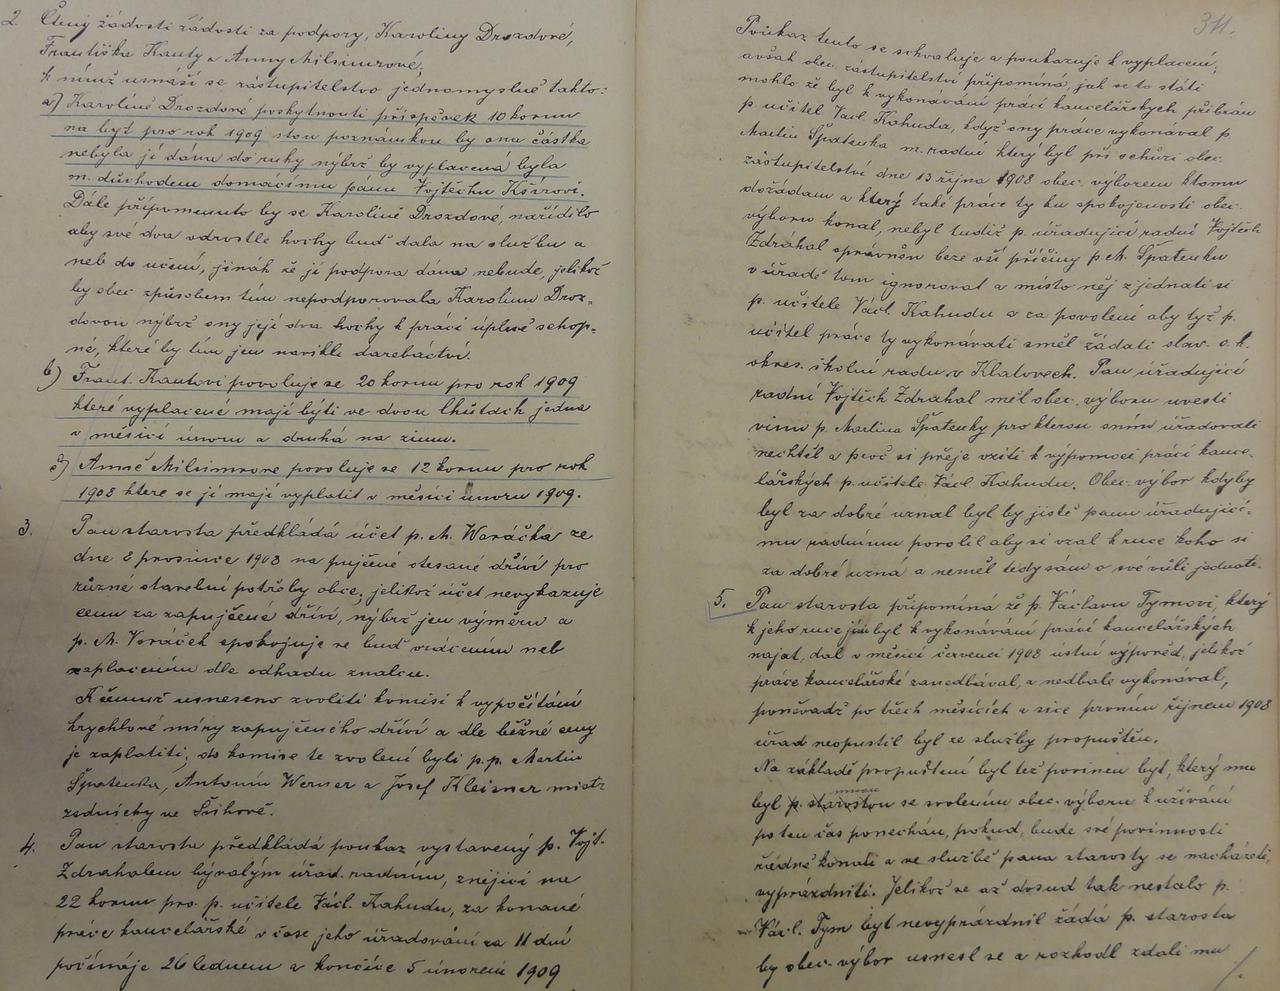 2. Čteny žádosti žádosti za podpory, Karoliny Drozdové,
Františka Kauty a Anny Milsimrové,
k nimž usnáší se zastupitelstvo jednomyslně takto:
a) Karolině Drozdové poskytnouti příspěvek 10 korun
na byt pro rok 1909 stou poznámkou by onu částka
nebyla jí dána do ruky nýbrž by vyplavená byla
m. důchodem domácímu pánu Vojtěchu Ksírovi.
Dále připomenuto by se Karolině Drozdové, nařídilo
aby své dva odrostle hochy buď dala na službu a
neb do učení, jináh že jí podpora dána nebude, jelikož
by obec způsobem tím nepodporovala Karolinu Droz-
dovou nýbrž ony její dva hochy k práci úplně schop-
né, které by tím jen navikla darebáctví.
b) Frant. Kautovi povoluje se 20 korun pro rok 1909
které vyplacené mají býti ve dvou lhůtách jedna
v měsíci únoru a druhá na zimu.
c) Anně Milsimrove povoluje se 12 korun pro rok
1908 ktere se jí mají vyplatit v měsíci únoru 1909.
3. Pan starosta předkládá účet p. A. Woráčka ze
dne 8 prosince 1908 na pujčené otesané dříví pro
různé stavební potřeby obce; jelikož účet nevykazuje
cenu za zapujčené dříví, nýbrž jen výměru a
p. A. Voráček spokojuje se buď vrácením neb
zaplacením dle odhadu znalcu.
Kčemuž usneseno zvoliti komisi k vypočítání
krychlové míry zapujčeného dříví a dle běžné ceny
je zaplatiti; do komise te zvolení byli p.p. Martin
Špatenka, Antonín Werner a Josef Kleisner mistr
zednický ve Švihově.
4. Pan starosta předkládá poukaz vystavený p. Vojt.
Zdrahalem bývalým úřad. radním, znějící na
22 korun pro p. učitele Václ. Kahudu, za konané
práce kancelářské v čase jeho úřadování za 11 dní
počínaje 26 lednem a končíce 5 únorem 1909
311.
Poukaz tento se schvaluje a poukazuje k vyplacení,
avšak obec. zástupitelství připomíná, jak se to státi
mohlo že byl k vykonávání prácí kancelářských přibrán
p učitel Václ. Kahuda, když ony práce vykonával p
Martin Špatenka m. radní který byl při schůzi obec.
zástupitelství dne 13 října 1908 obec. výborem ktomu
dožádam a který také práce ty ku spokojenosti obec.
výboru konal, nebyl tudíž p. úřadující radní Vojtěch
Zdráhal správněn beze vší příčiny p. M. Špatenku
v úřadě tom ignorovat a místo něj zjednati si
p. učitele Václ. Kahudu a za povolení aby týž p.
učitel práce ty vykonávati směl žádati slav. c. k.
okres. školní radu v Klatovech. Pan úřadující
radní Vojtěch Zdrahal měl obec. výboru uvesti
vinu p. Martina Špatenky pro kterou sním úřadovati
nechtěl a proč si přeje vzíti k výpomoci prácí kance-
lářských p. učitele Václ. Kahudu. Obec. výbor kdyby
byl za dobré uznal byl by jistě panu úřadující-
mu radnímu povolil aby si vzal k ruce koho si
za dobré uzná a neměl tedy sám o své vůli jednati.
5. Pan starosta připomíná že p. Václavu Tymovi, který
k jeho ruce jím byl k vykonávání prácí kancelářských
najat, dal v měsíci červenci 1908 ústní výpověd, jelikož
prace kancelářské zanedbával, a nedbale vykonával,
poněvadž po třech měsících a sice prvním říjnem 1908
úřad neopustil byl ze služby propuštěn.
Na základě propuštění byl též povinen byt, který mu
byl p. starostou se svolením obec. výboru k užívání
po ten čas ponechán, pokud bude své povinnosti
řádně konati a ve službě pana starosty se nacházeti,
vyprázdniti. Jelikož se až dosud tak nestalo p.
Václ. Tym byt nevyprázdnil žádá p. starosta
by obec. výbor usnesl se a rozhodl zdali mu